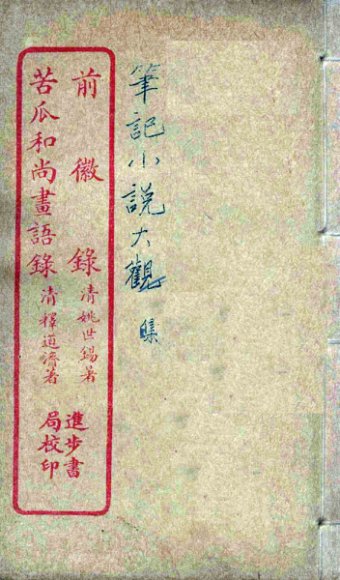 筆記小說大觀
前徽錄 清姚世錫著
苦瓜和尚畫語錄 清釋道濟著
進步書
局校印